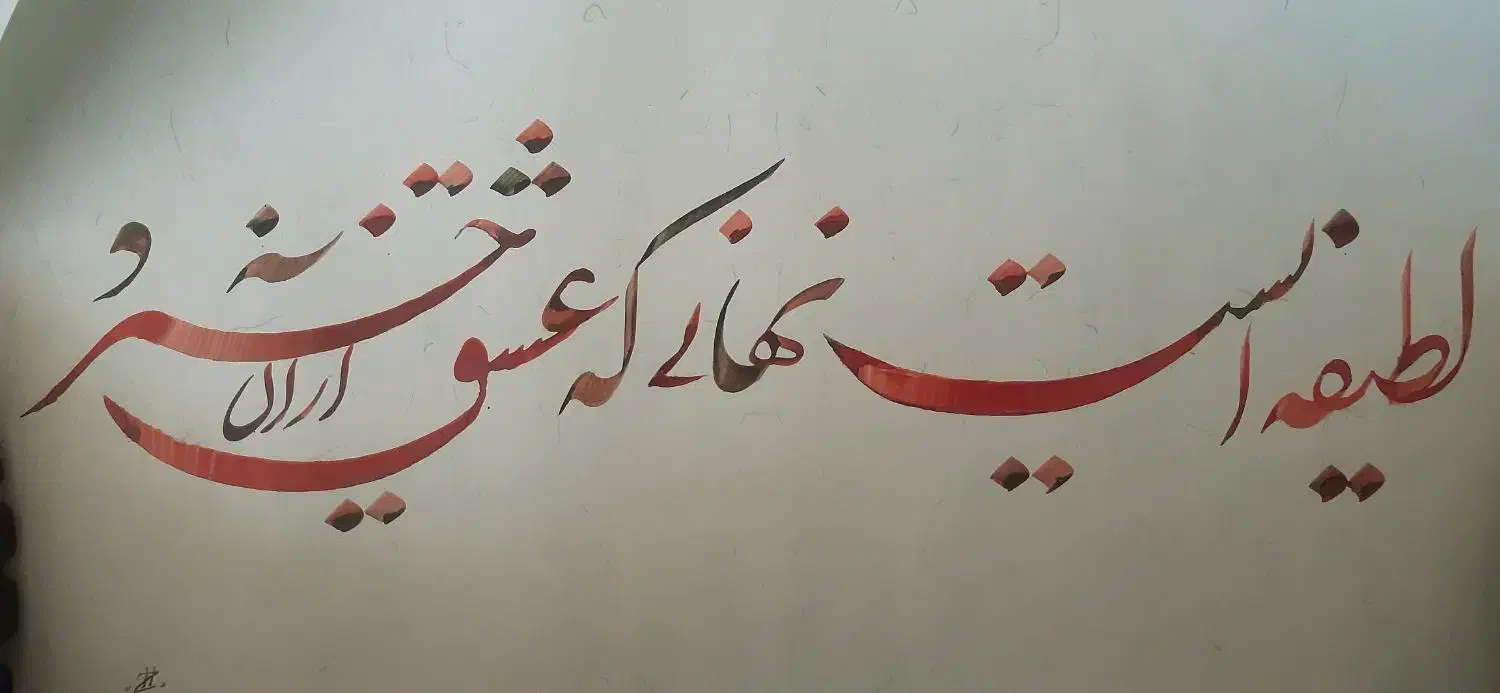 لطیفه ایست نهانی که عشق از آن خیزد